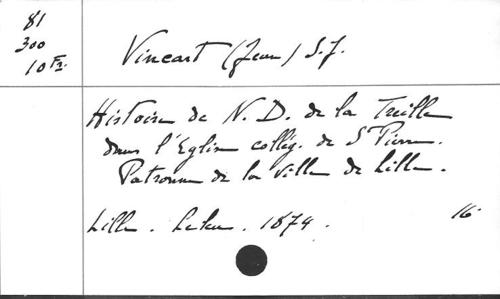 81
300
10 Fr.
Vincart (Jean) S.J.
Histoire de N. D. de la Treille
dans l'Eglise collég. de St Pierre.
Patronne de la ville de Lille.
Lille. Lefort. 1874. 16